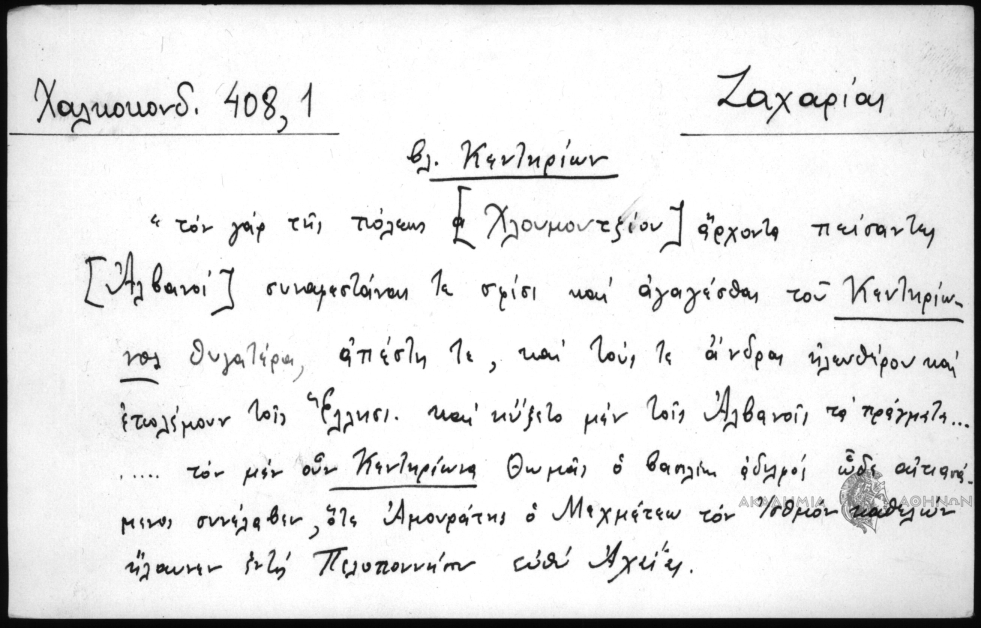 Χαλκοκονδ. 408,1
Ζαχαρίας
βλ. Κεντηρίων
"τόν γάρ τῆς πόλεως [Χλουμουτζίου] ἄρχοντα πείσαντες
[Ἀλβανοί] συναφεστάναι τε σφίσι καί ἀγαγέσθαι τοῦ Κεντηρίω-
νος θυγατέρα, ἀπέστη τε, καί τούς τε ἄνδρας ἠλευθέρου καί
ἐπολέμουν τοῖς Ἕλλησι. καί ηὔξετο μέν τοῖς Ἀλβανοῖς τά πράγματα...
..... τόν μέν οὖν Κεντηρίωνα Θωμᾶς ὁ βασιλέως ἀδελφός ὧδε αἰτιασά-
μενος συνέλαβεν, ὅτε Ἀμουράτης ὁ Μεχμέτεω τόν Ἰσθμόν καθελών
ἤλαυνεν ἐντός Πελοποννήσου εὐθύ Ἀχαΐας.
ΑΚΑΔΗΜΙΑ ΑΘΗΝΩΝ